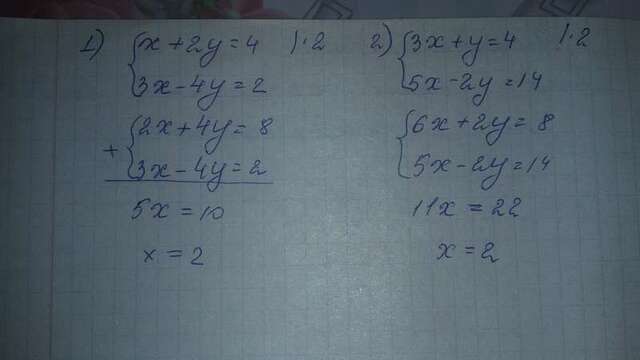 1) { x + 2y = 4 | · 2
3x - 4y = 2
+ { 2x + 4y = 8
3x - 4y = 2
5x = 10
x = 2
2) { 3x + y = 4 | · 2
5x - 2y = 14
{ 6x + 2y = 8
5x - 2y = 14
11x = 22
x = 2